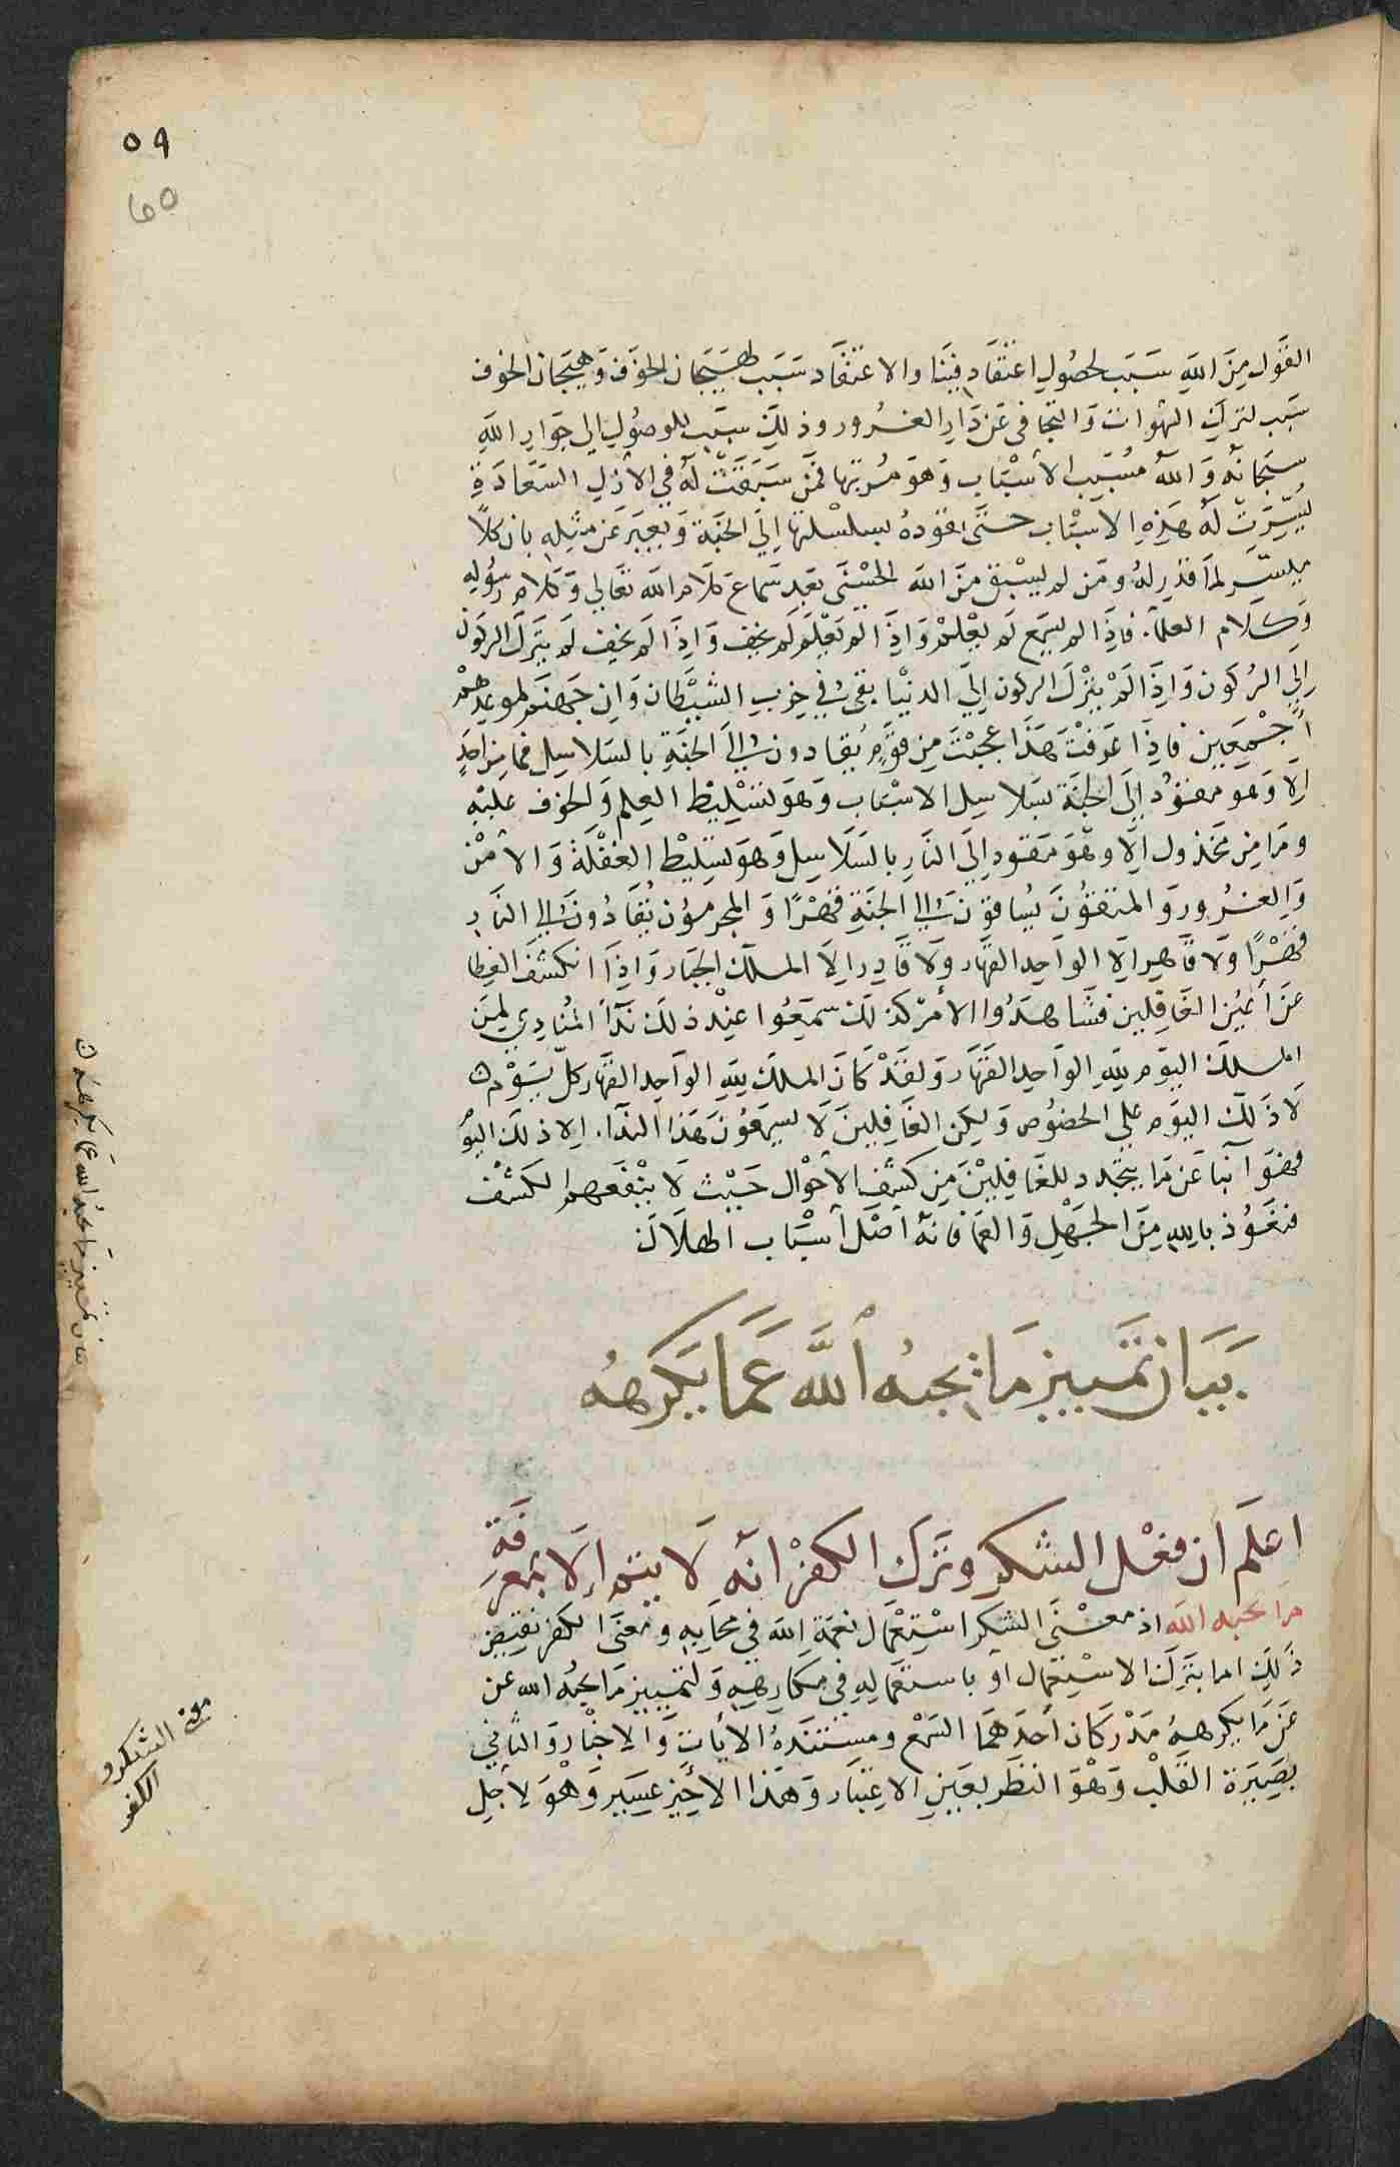 ٥٩
٥٥
القول من الله سبب لحصول اعتقاد فينا والاعتقاد سبب لهيجان الخوف وهيجان الخوف
سبب لترك الشهوات والتجافي عن دار الغرور وذلك سبب للوصول الى جوار الله
سبحانه والله مسبب الأسباب وهو مرتبها فمن سبقت له في الأزل السعادة
يسرت له هذه الاسباب حتى يقوده بسلسلتها إلى الجنة ويعبر عن مثله بان كلا
ميسر لما قدر له ومن لم يسبق من الله الحسنى بعد سماع كلام الله تعالى وكلام رسوله
وكلام العلماء فاذا لم يسمع لم يعلم واذا لم يعلم لم يخف واذا لم يخف لم يترك الركون
إلى الركون واذا لم يترك الركون إلى الدنيا بقي في حزب الشيطان وان جهنم لموعدهم
أجمعين فاذا عرفت هذا عجبت من قوم يقادون الى الجنة بالسلاسل فما من احد
إلا وهو مقود إلى الجنة بسلاسل الاسباب وهو تسليط العلم والخوف عليه
وما من مخذول إلا وهو مقود إلى النار بالسلاسل وهو تسليط الغفلة والأمن
والغرور والمتقون يساقون الى الجنة قهرا والمجرمون يقادون الى النار
قهرا ولا قاهر إلا الواحد القهار ولا قادر إلا الملك الجبار واذا انكشف الغطا
عن أعين الغافلين فشاهدوا الأمر كذلك سمعوا عند ذلك ندآ المنادي لمن
الملك اليوم لله الواحد القهار ولقد كان الملك لله الواحد القهار كل يوم ه
لا ذلك اليوم على الخصوص ولكن الغافلين لا يسمعون هذا الندآ الا ذلك اليوم
فهو أنبا عن ما يتجدد للغافلين من كشف الأحوال حيث لا ينفعهم الكشف
فنعوذ بالله من الجهل والعما فانه أصل أسباب الهلاك
بيان تمييز ما يحبه الله عما يكرهه
اعلم ان فعل الشكر وترك الكفرانه لا يتم إلا بمعرفة
ما يحبه الله اذ معنى الشكر استعمال نعمة الله في محابه ومعنى الكفر نقيض
ذلك اما بترك الاستعمال أو باستعماله في مكارهه ولتمييز ما يحبه الله عن
عن ما يكرهه مدركان أحدهما السمع ومستنده الآيات والاخبار والثاني
بصيرة القلب وهو النظر بعين الاعتبار وهذا الأخير عسير وهو لأجل
بيان تمييز ما يحبه الله عما يكرهه ه
معنى الشكر و
الكفر